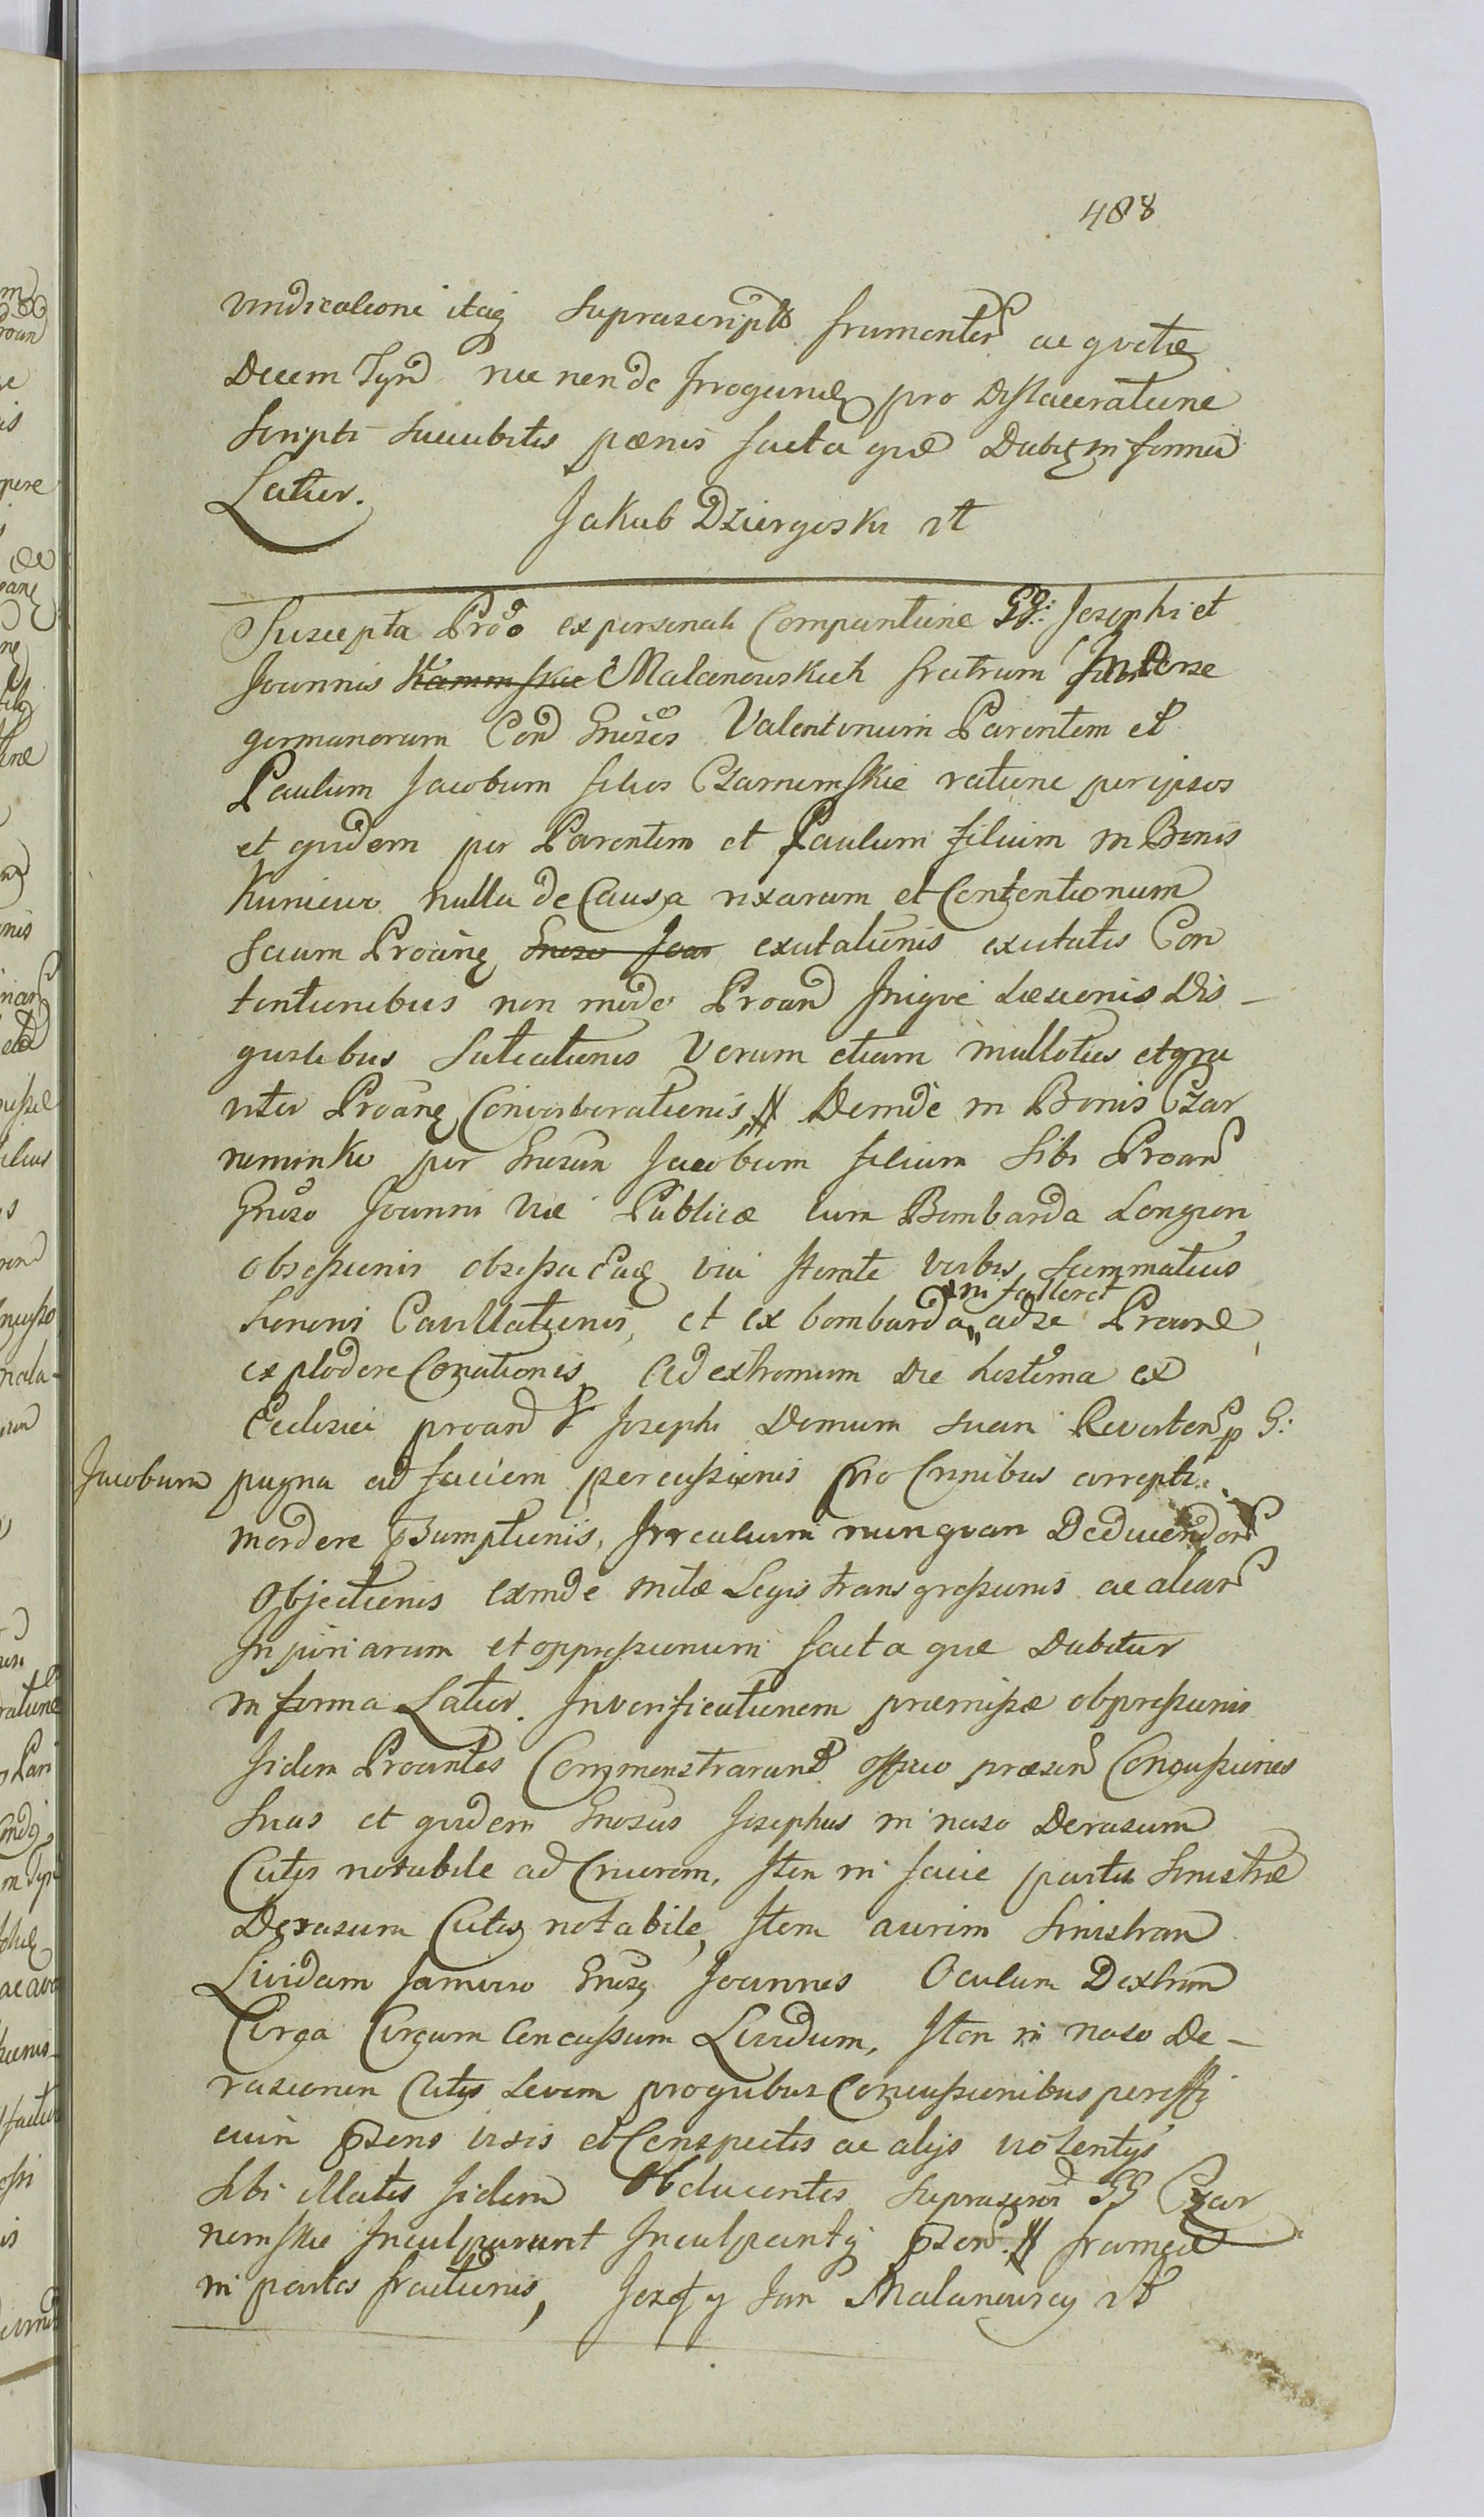 488
vindicatione itaq suprascripto frumentor ac quotae
Decem Tyn nec non de Irrogand pro Dislaceratione
Scripti succubitis paenis facta quae Dabit in forma
Latior.
Jakub Dziergoski mp
Suscepta Pro ex personali Comparitione GG: Josephi et
Joannis Kaminskie Malanowskich fratrum Inter se
germanorum Con Gnosos Valentinum Parentem et
Paulum Jacobum filios Czarnimskie ratione per ipsos
et quidem per Parentem et Paulum filium in Bonis
Kunicio nulla de Causa rixarum et Contentionum
secum Proanq Gnoso Joan excitationis excitatis Con
tentionibus non modo Proand Inique Laesionis Dis-
gustibus Satiationis Verum etiam mullotus et gra
viter Proanq Converberationis, Deinde in Bonis Czar
neminko per Gnosum Jacobum filium sibi Proan
Gnoso Joanni viae Publicae cum Bombarda Longiori
obsessionis obsessa Eaq via Iterate verbis summatius
Sonoris Cavillationis, et ex bombarda ni falleret ad se Proane
explodere Conationis, Ad extremum Die hesterna ex
Ecclesia proand G Josephi Domum suam Reverten p G:
Jacobum pugna ad faciem percussionis pro Crinibus arrepti
mordere Psumptionis, Irreculum nunquam Deducendor
Objectionis exinde mitae Legis transgressionis ac aliar
Injuriarum et oppressionum facta quae Dabitur
in forma Latior. In verificationem praemissae obpressionis
Iidem Proantes Commonstrarunt officio praesen Concussiones
suas et quidem Gnosus Josephus in naso Derasum
Cutis notabile ad Cruorem, Item in facie partis sinistrae
Derasum Cutis notabile, Item aurim Sinistram
Lividam Jamvero Gnosq Joannes Oculum Dextrum
Circa Circum Concussum Lividum, Item in naso De-
rasionem Cutis Levem pro quibus Concussionibus per offi
cium Psens visis et Conspectis ac alijs violentijs
sibi illatis Iidem Obducentes suprascri GG Czar
nemskie Inculparunt Inculpantq Psen frameae
in partes fractionis, Jozef y Jan Malanowscy mp